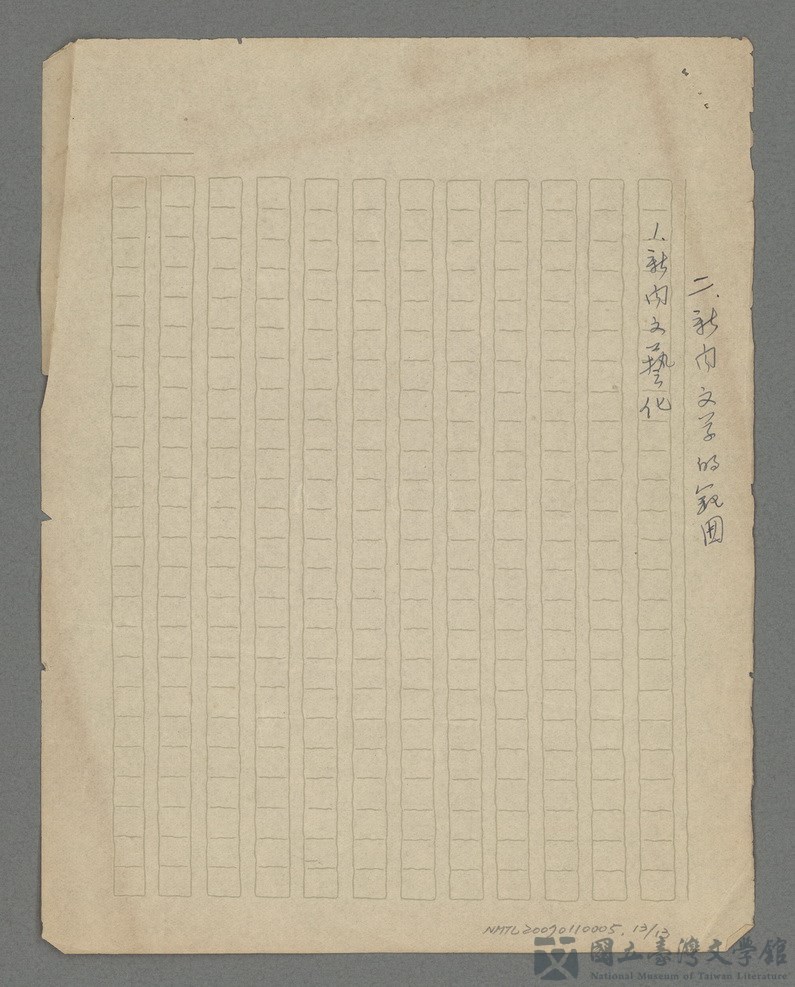 二、新内文学的範囲
1、新内文藝化
NMTL20090110005, 13/13
國立臺灣文學館
National Museum of Taiwan Literature